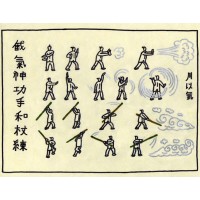 氣神功手和杖練
月以氣